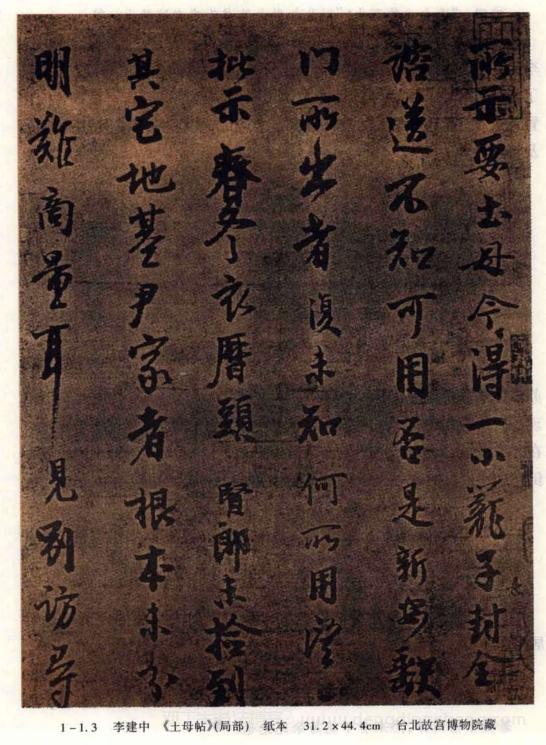 所示要土母今得一小笼子封全
咨送不知可用否是新安缺
门所出者復未知何所用望
批示春冬衣历头贤郎未检到
其宅地基尹家者根本未分
明难商量耳见别访寻
1-1.3 李建中 《土母帖》(局部) 纸本 31.2×44.4cm 台北故宫博物院藏